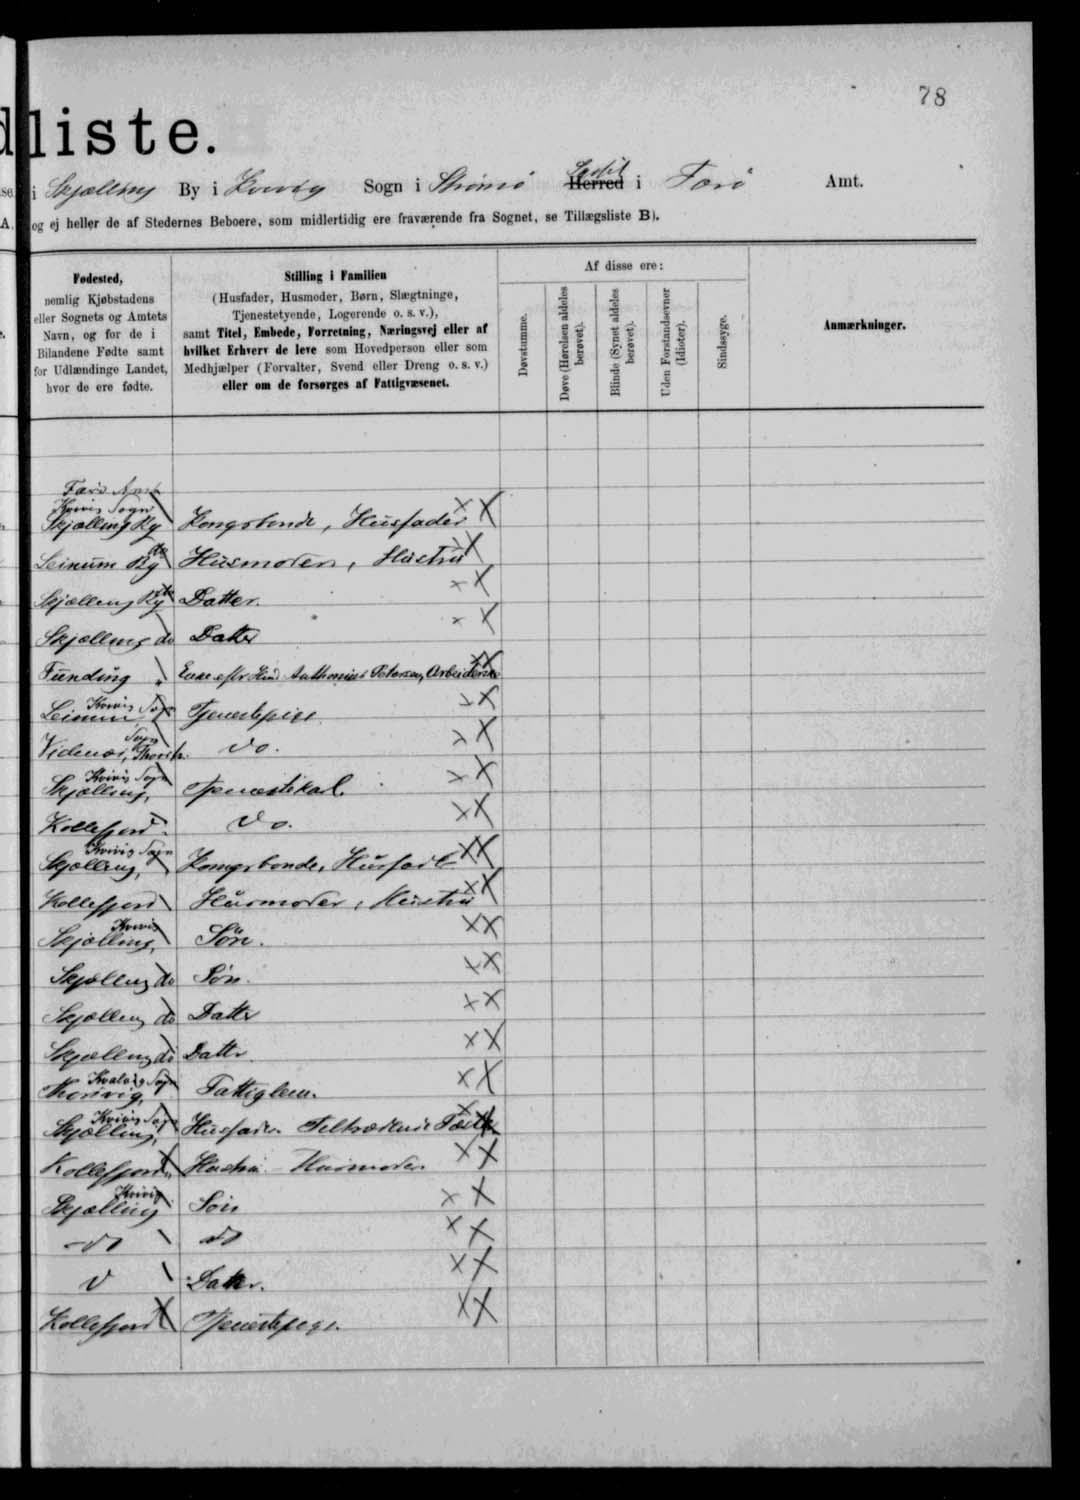 78
liste.
i Skjælling By i Kvivig Sogn i Strømø Syssel Herred i Færø Amt.
og ej heller de af Stedernes Beboere, som midlertidig ere fraværende fra Sognet, se Tillægsliste B).
Fødested,
nemlig Kjøbstadens
eller Sognets og Amtets
Navn, og for de i
Bilandene Fødte samt
for Udlændinge Landet,
hvor de ere fødte.
Stilling i Familien
(Husfader, Husmoder, Børn, Slægtninge,
Tjenestetyende, Logerende o. s. v.),
samt Titel, Embede, Forretning, Næringsvej eller af
hvilket Erhverv de leve som Hovedperson eller som
Medhjælper (Forvalter, Svend eller Dreng o. s. v.)
eller om de forsørges af Fattigvæsenet.
Af disse ere:
Døvstumme.
Døve (Hørelsen aldeles
berøvet).
Blinde (Synet aldeles
berøvet).
Uden Forstandsevner
(Idioter).
Sindssyge.
Anmærkninger.
Færø Amt
Kvivig Sogn
Skjælling By Kongsbonde, Husfader
Leinum By do Husmoder, Hustru
Skjælling By do Datter.
Skjælling do Datter
Funding " Enke efter Anthonius Petersen, Arbeiderske
Kvivig Sogn
Leinum Tjenestepige
Sogn
Videnæs, Thorsh. do.
Kvivig Sogn
Skjælling, Tjenestekarl.
Kollefjord do.
Kvivig Sogn
Skjælling, Kongsbonde, Husfader
Kollefjord Husmoder, Hustru
Kvivig
Skjælling, Søn.
Skjælling do Søn.
Skjælling do Datter
Skjælling do Datter.
Kvalvig Sogn
Thorsvig, Fattiglem.
Kvivig Sogn
Skjælling, Husfader
Kollefjord Hustru Husmoder
Kvivig
Skjælling Søn
do do
do Datter.
Kollefjord Tjenestepige.